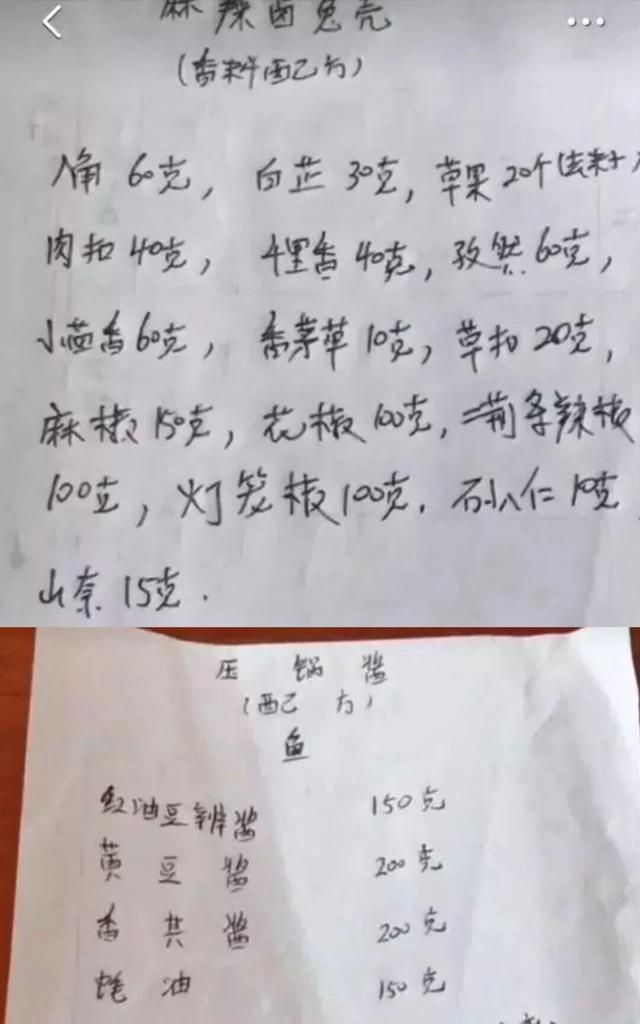 麻辣卤兔壳
(香料配方)
八角 60克, 白芷 30克, 草果 20个(去籽
肉扣 40克, 千里香 40克, 孜然 60克,
小茴香 60克, 香茅草 10克, 草扣 20克,
麻椒 150克, 花椒 100克, 二荆条辣椒
100克, 灯笼椒 100克. 砂仁 10克
山奈 15克.
压 锅 酱
(配 方)
鱼
红油豆辨酱 150克
黄豆酱 200克
香其酱 200克
蚝油 150克